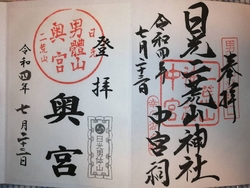 奉拝
日光二荒山神社
中宮祠
令和四年
七月二十三日
登拝
奥宮
令和四年
七月
日光
男體山
奥宮
二荒山
日光男体山